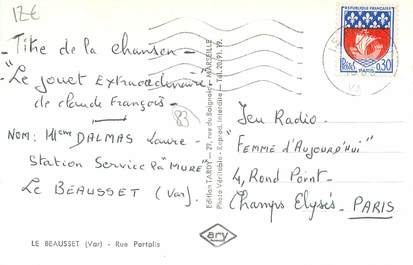 12€
- Titre de la chanson -
- "Le jouet extraordinaire"
de claude François -
83
NOM: Mme DALMAS Laure -
Station Service la "MURE"
Le BEAUSSET (Var)
LE BEAUSSET (Var) - Rue Portalis
Edition TARDY - 29, rue du Baignoir - MARSEILLE
Photo Véritable - Reprod. Interdite - Tél. 20.91.19.
ary
REPUBLIQUE FRANÇAISE
POSTES
0,30
PARIS
Jeu Radio -
"FEMME d'Aujourd'hui"
4, Rond Point -
Champs Elysés - PARIS